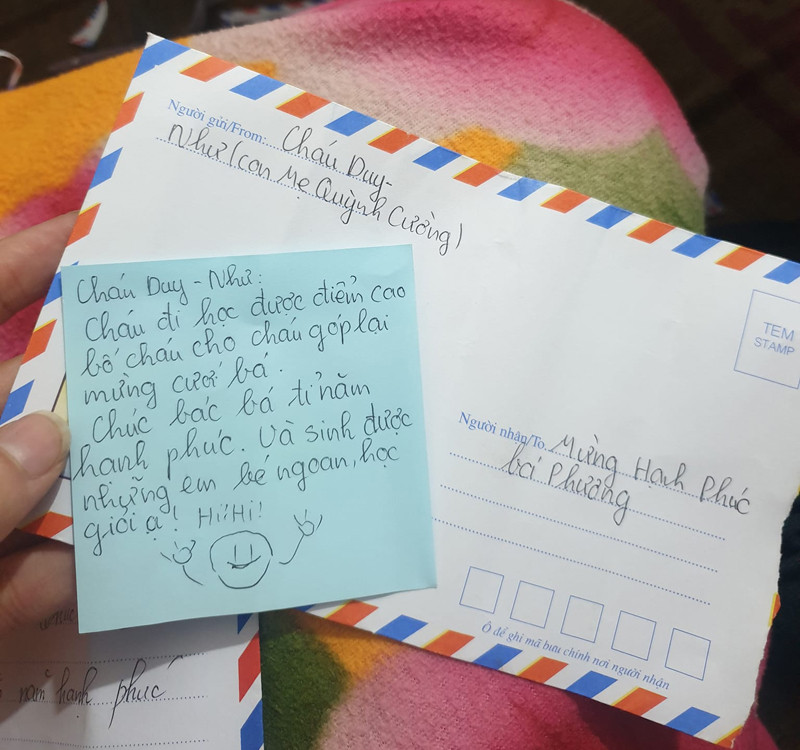 Người gửi/From: Cháu Duy-
Như (con Mẹ Quỳnh Cường)
TEM
STAMP
Cháu Duy - Như:
Cháu đi học được điểm cao
bố cháu cho cháu góp lại
mừng cưới bá.
Chúc bác bá tỉ năm
hạnh phúc. Và sinh được
những em bé ngoan, học
giỏi ạ! Hi! Hi!
Người nhận/To Mừng Hạnh Phúc
bá Phương
Ô để ghi mã bưu chính nơi người nhận
năm hạnh phúc